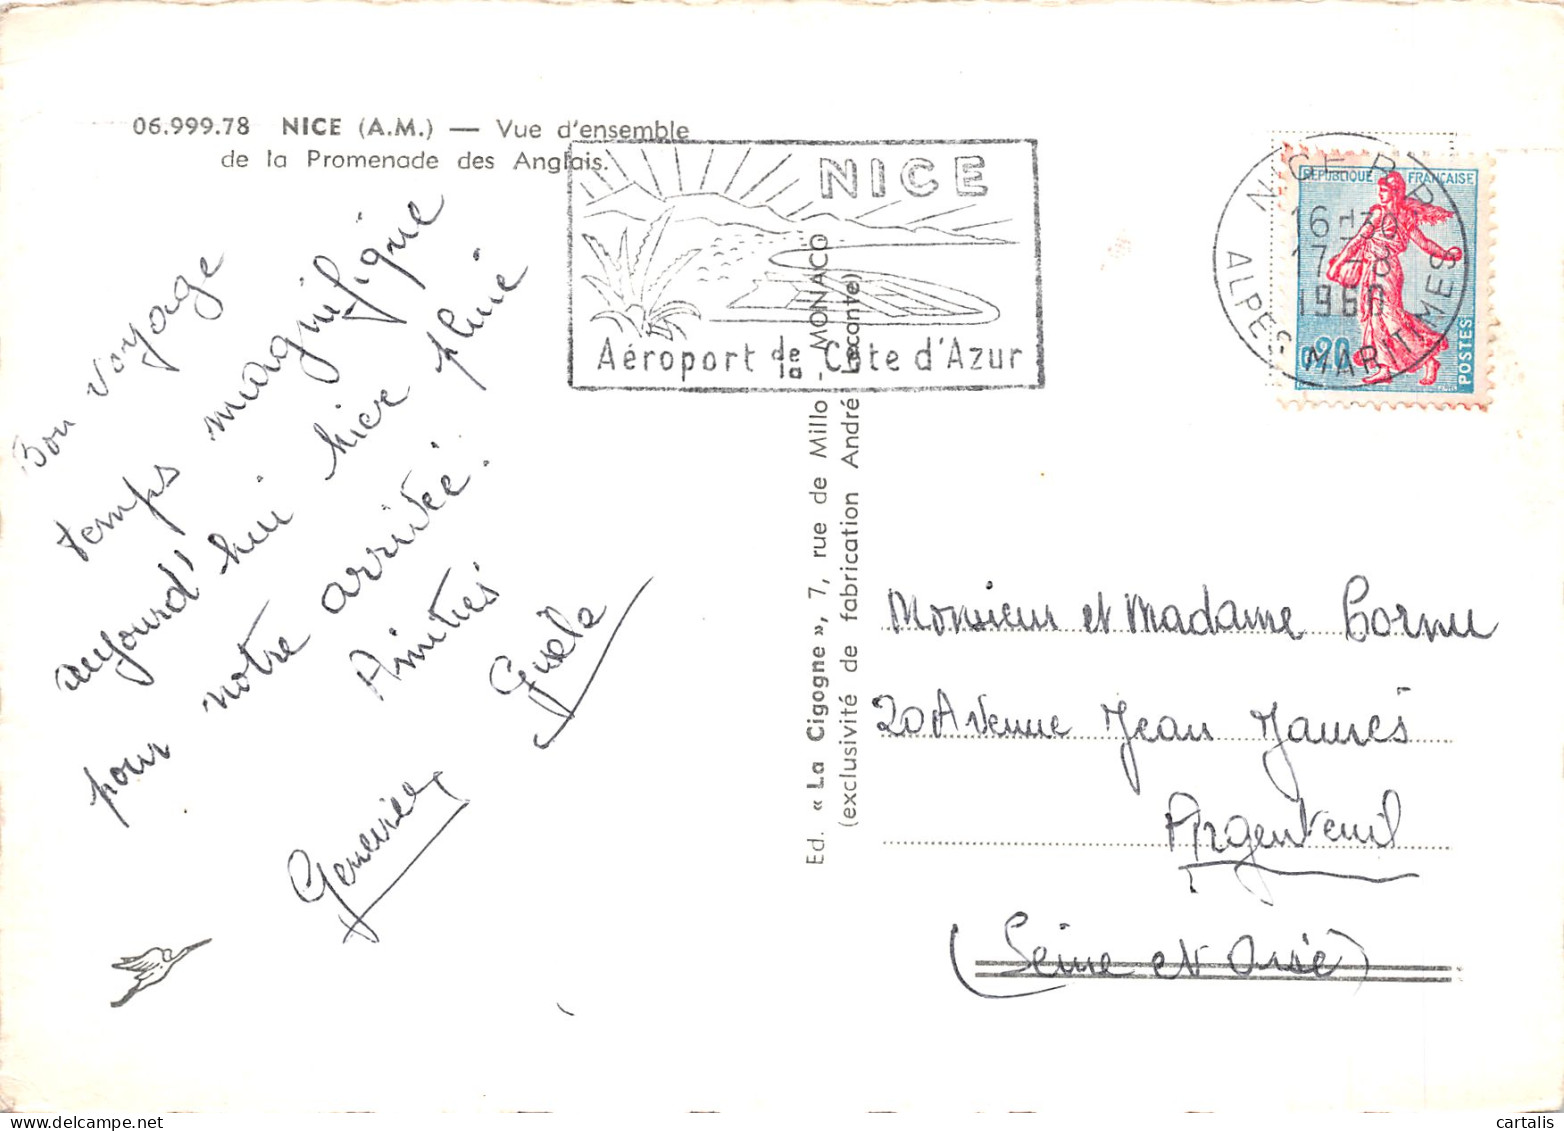 06.999.78 NICE (A.M.) — Vue d'ensemble
de la Promenade des Anglais.
NICE
Aéroport de la Côte d'Azur
NICE R.P.
16 H30
17 - 8
1960
ALPES-MARITIMES
RÉPUBLIQUE FRANÇAISE
0,20
POSTES
Bon voyage
temps magnifique
aujourd'hui hier pluie
pour notre arrivée.
Amitiés
Gisèle
Geneviève
Ed. « La Cigogne », 7, rue de Millo - MONACO
(exclusivité de fabrication André Leconte)
Monsieur et Madame Cornu
20 Avenue Jean Jaurès
Argenteuil
(Seine et Oise)
cartalis